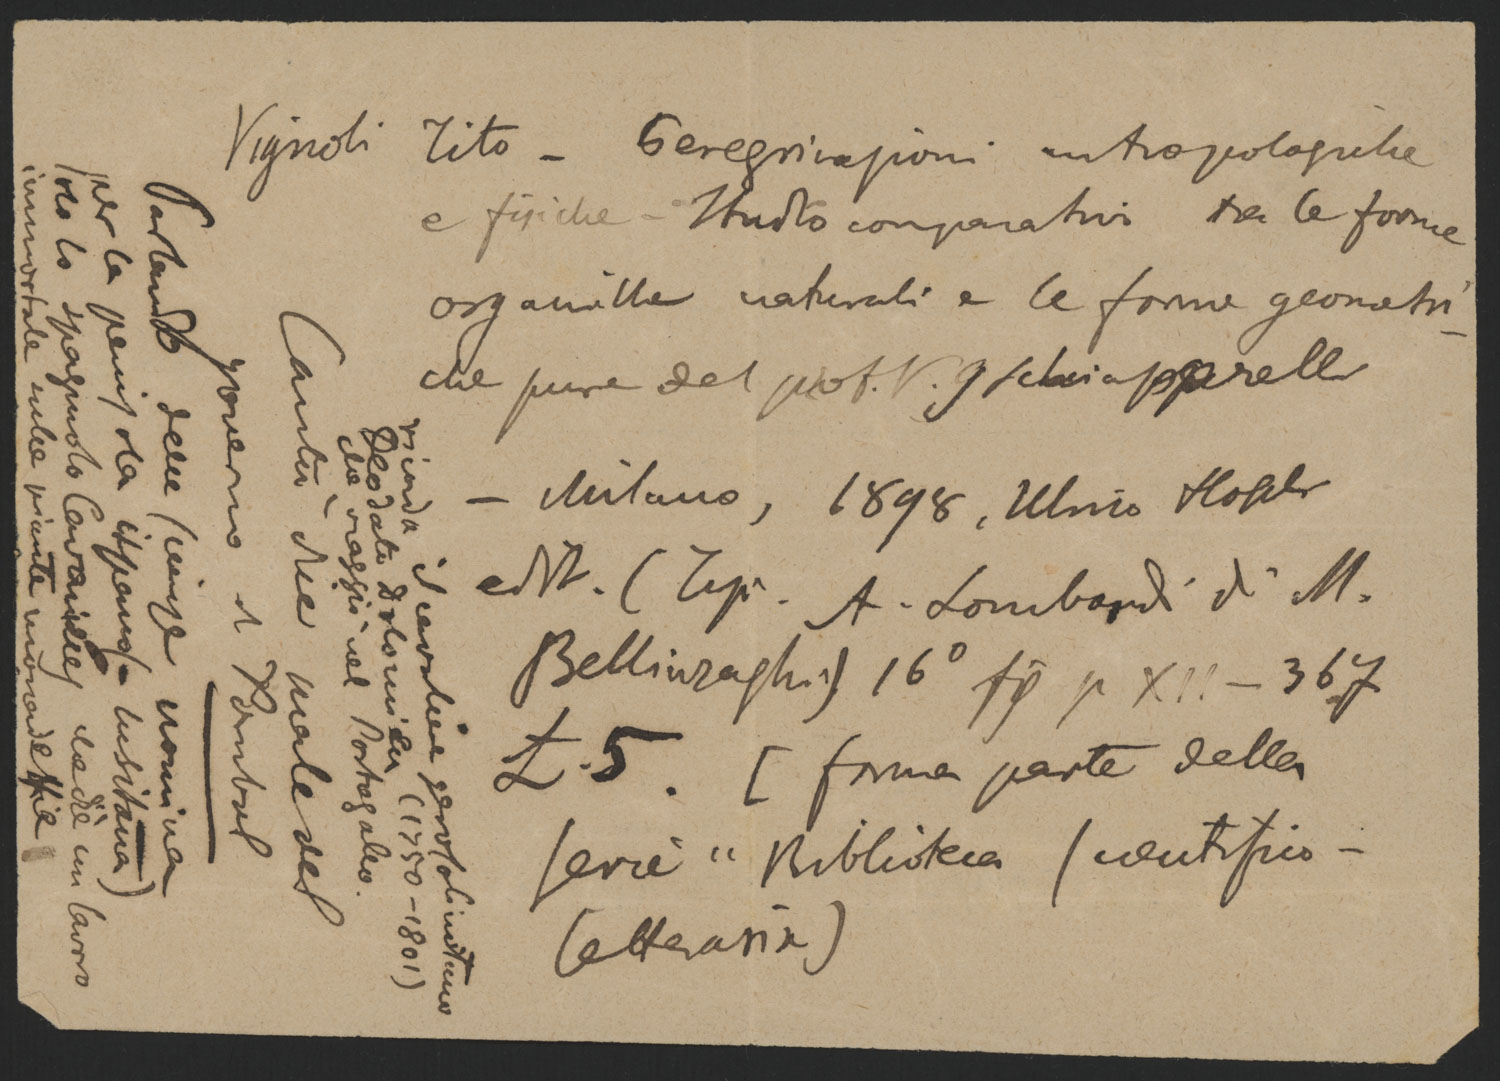 Vignoli Tito - Peregrinazioni antropologiche
e fisiche - Studio comparativo tra le forme
organiche naturali e le forme geometri-
che pure del prof. V. G Schiapparelli
- Milano, 1898, Ulrico Hoepli
edit. (Tip. A. Lombardi di M.
Bellinzaghi) 16° fig p XII - 367
£. 5. [forma parte della
serie "Biblioteca scientifico-
letteraria)
Parlando delle scienze nomina
per la penisola ispano-lusitana)
solo lo spagnolo Cavanilles che diè un lavoro
immortale sulle piante monadelfie
Cantù dice male del
governo di Pombal
il cavaliere gerosolimitano
Deodato Dolomieu (1750-1801)
che viaggiò nel Portogallo.